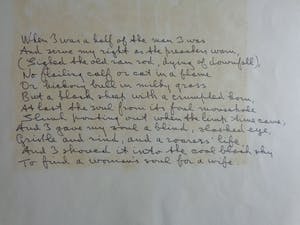 When I was a half of the man I was
And serve my right as the preachers warn,
(Sighed the old ram rod, dying of downfall),
No flailing calf or cat in a flame
Or hickory bull in milky grass
But a black sheep with a crumpled horn,
At last the soul from its foul mousehole
Slunk pouting out when the limp time came,
And I gave my soul a blind, slashed eye,
Gristle and rind, and a roarers' life
And I shoved it into the coal black sky
To find a woman's soul for a wife.